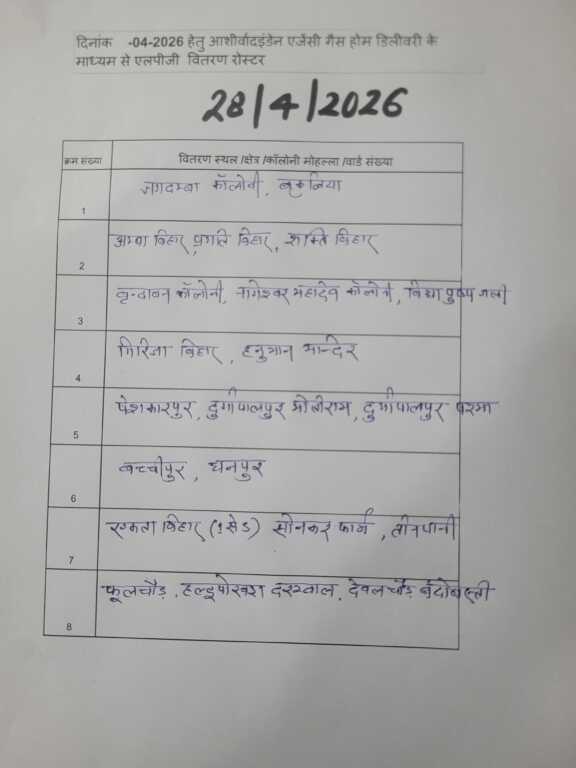 दिनांक -04-2026 हेतु आशीर्वादइंडेन एजेंसी गैस होम डिलीवरी के
माध्यम से एलपीजी वितरण रोस्टर
28/4/2026
क्रम संख्या वितरण स्थल /क्षेत्र /कॉलोनी मोहल्ला /वार्ड संख्या
1 जगदम्बा कॉलोनी,
2 विहार, प्रगति विहार, शान्ति विहार
3 वृन्दावन कॉलोनी, नागेश्वर महादेव कॉलोनी, विद्या पुष्प गली
4 गिरिजा विहार, हनुमान मन्दिर
5 पेशकारपुर, दुर्गापालपुर मोतीराम, दुर्गापालपुर परमा
6 बच्चीपुर, धनपुर
7 एकता विहार (1 सेड) सोनकर फार्म, तीनपानी
8 फूलचौड़, हल्दूपोखरा दरम्वाल, देवलचौड़ बंदोबस्ती